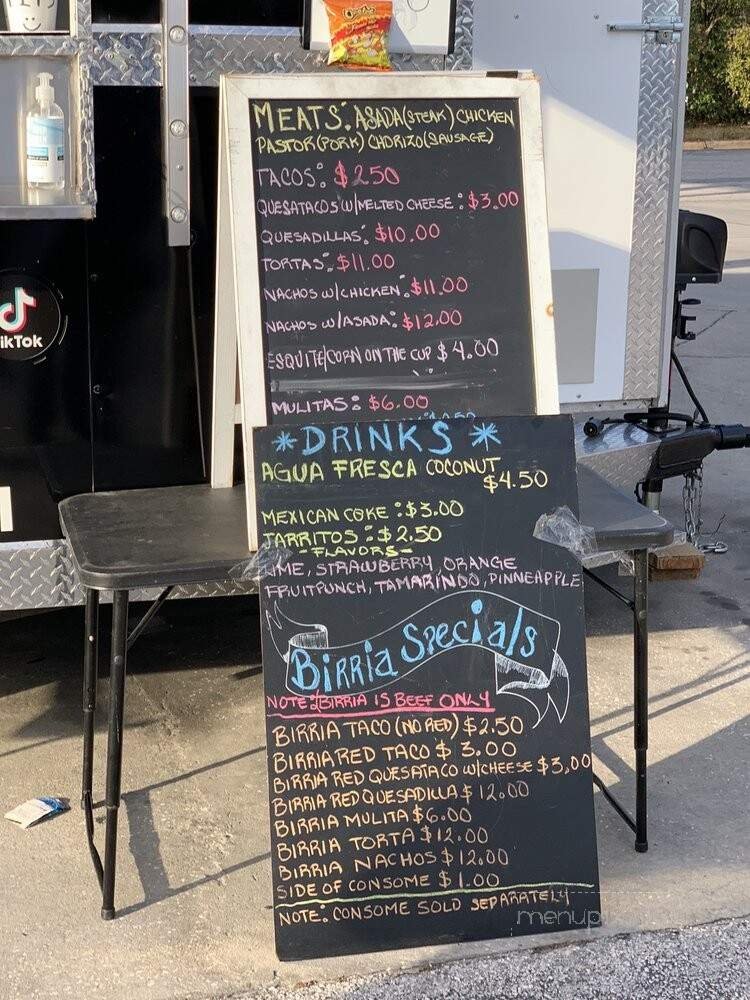 MEATS: ASADA(STEAK) CHICKEN
PASTOR(PORK) CHORIZO(SAUSAGE)
TACOS: $2.50
QUESATACOS W/MELTED CHEESE: $3.00
QUESADILLAS: $10.00
TORTAS: $11.00
NACHOS W/CHICKEN: $11.00
NACHOS W/ASADA: $12.00
ESQUITE/CORN ON THE CUP $4.00
MULITAS: $6.00
TikTok
*DRINKS*
AGUA FRESCA COCONUT
$4.50
MEXICAN COKE: $3.00
JARRITOS: $2.50
-FLAVORS-
LIME, STRAWBERRY, ORANGE
FRUITPUNCH, TAMARINDO, PINNEAPPLE
Birria Specials
NOTE: BIRRIA IS BEEF ONLY
BIRRIA TACO (NO RED) $2.50
BIRRIA RED TACO $3.00
BIRRIA RED QUESATACO W/CHEESE $3.00
BIRRIA RED QUESADILLA $12.00
BIRRIA MULITA $6.00
BIRRIA TORTA $12.00
BIRRIA NACHOS $12.00
SIDE OF CONSOME $1.00
NOTE: CONSOME SOLD SEPARATELY